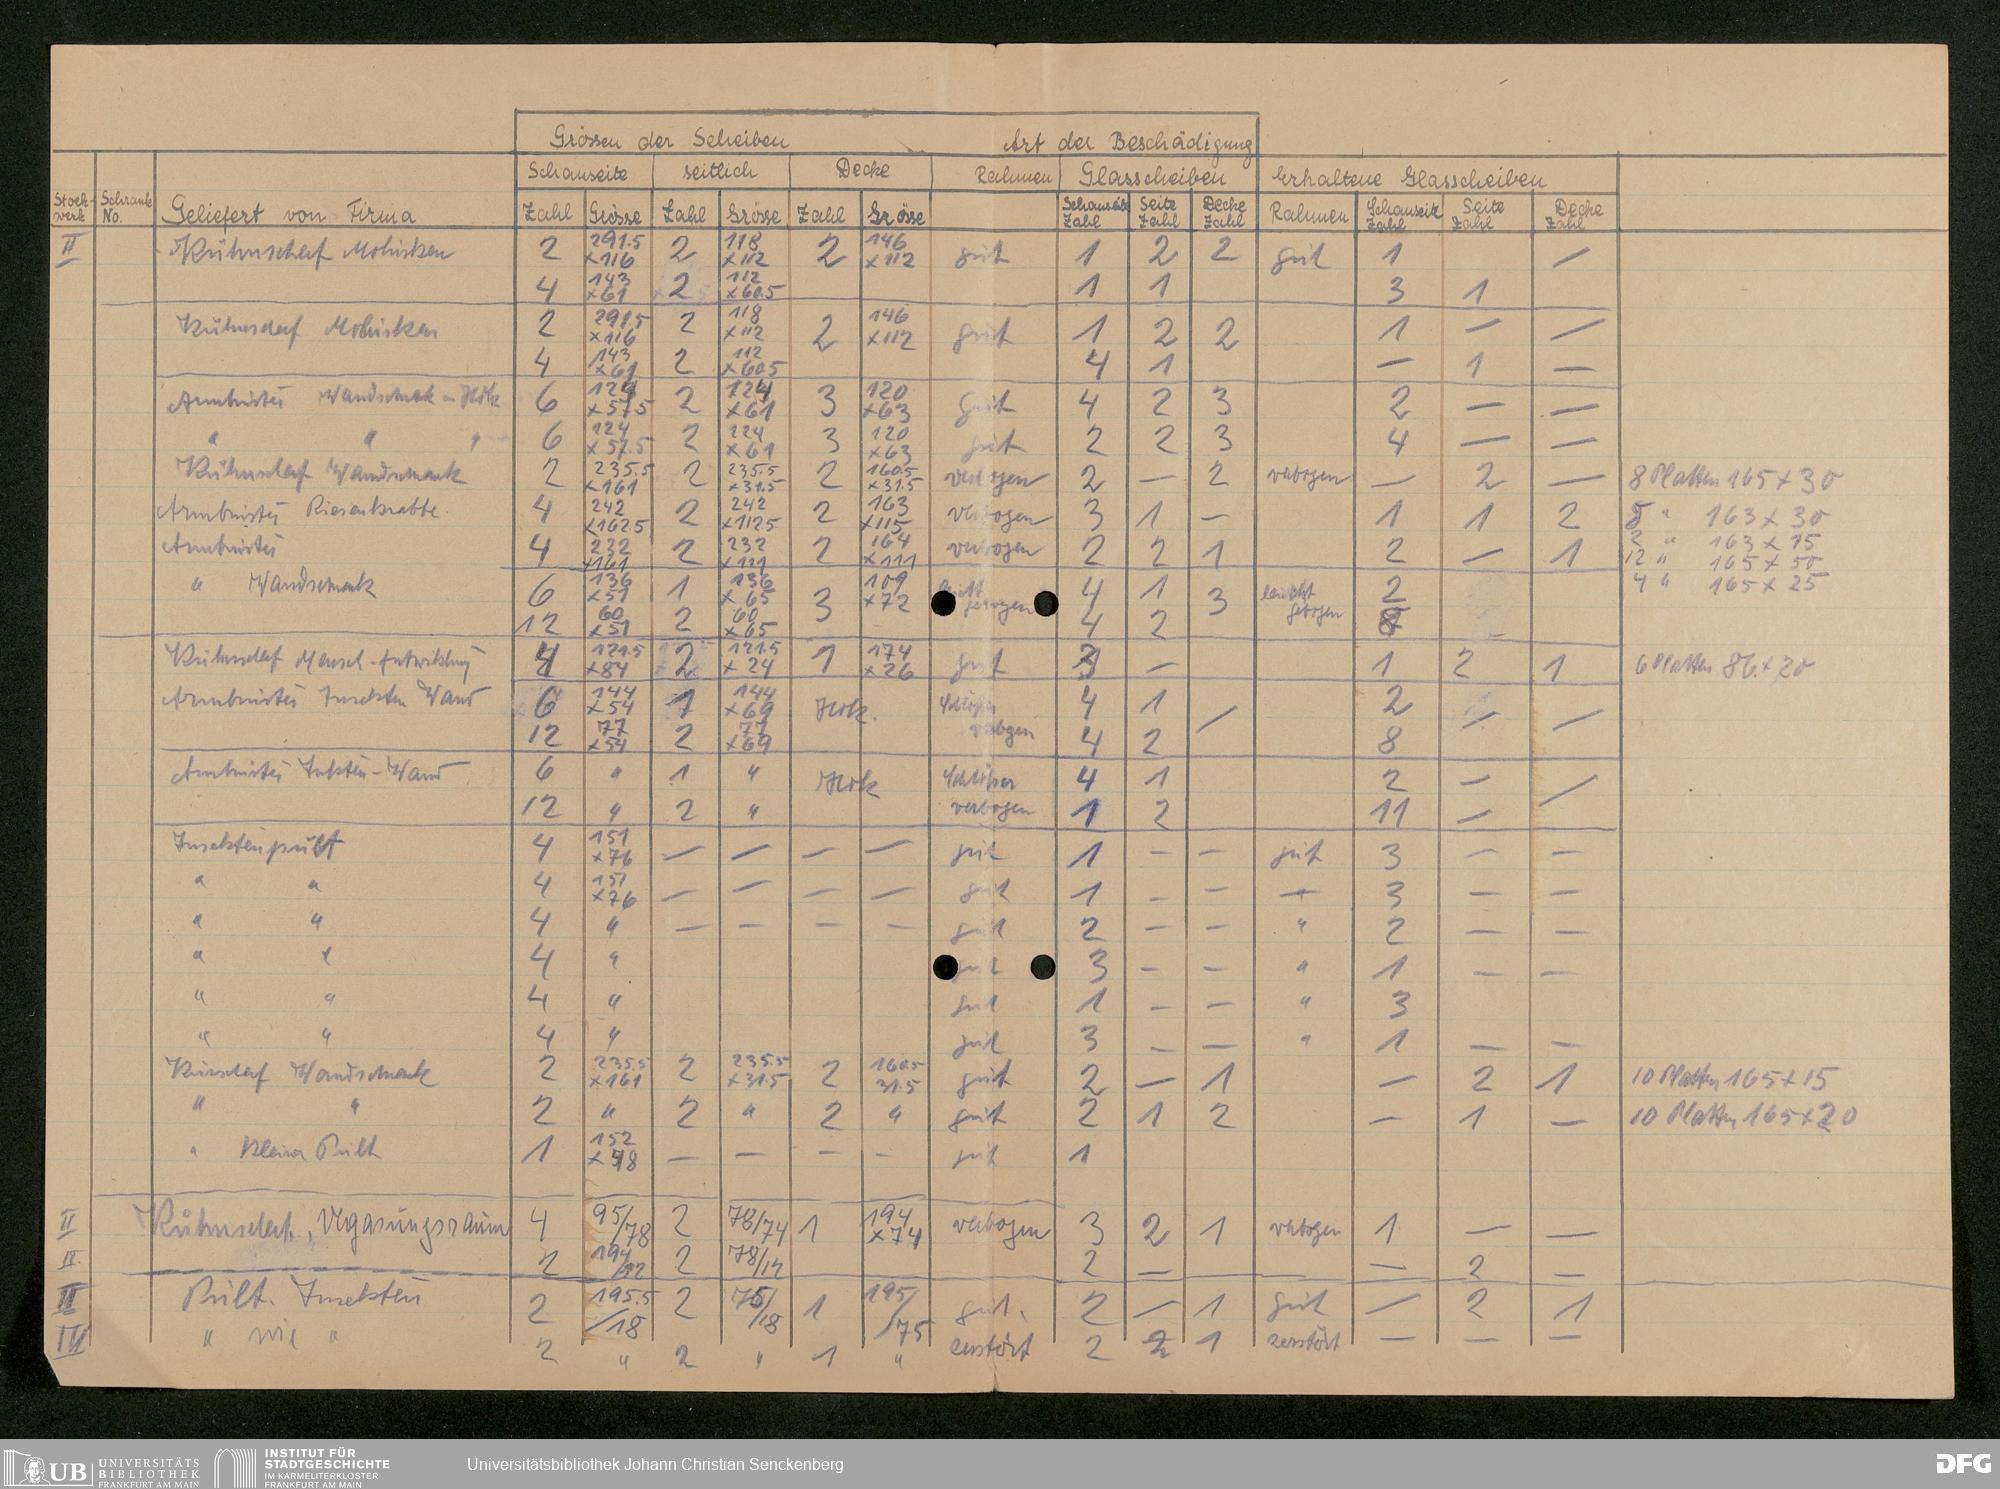 Grössen der Scheiben Art der Beschädigung
Schauseite seitlich Decke Rahmen Glasscheiben Erhaltene Glasscheiben
Stock-werk Schrank No. Geliefert von Firma Zahl Grösse Zahl Grösse Zahl Grösse Schauseite Zahl Seite Zahl Decke Zahl Rahmen Schauseite Zahl Seite Zahl Decke Zahl
II Kühnscherf Mollusken 2 291.5 x116 2 118 x112 2 146 x112 gut 1 2 2 gut 1 —
4 143 x61 2 112 x60.5 1 1 3 1
Kühnscherf Mollusken 2 291.5 x116 2 118 x112 2 146 x112 gut 1 2 2 1 — —
4 143 x61 2 112 x60.5 4 1 — 1 —
Armbrüster Wandschrank - Holz 6 124 x57.5 2 124 x61 3 120 x63 gut 4 2 3 2 — —
" " " 6 124 x57.5 2 124 x61 3 120 x63 gut 2 2 3 4 — —
Kühnscherf Wandschrank 2 235.5 x161 2 235.5 x31.5 2 160.5 x31.5 verbogen 2 — 2 verbogen — 2 — 8 Platten 165 x 30
Armbrüster Riesenkrabbe 4 242 x162.5 2 242 x112.5 2 163 x115 verbogen 3 1 — 1 1 2 5 " 163 x 30
2 " 163 x 15
Armbrüster 4 232 x161 2 232 x111 2 164 x111 verbogen 2 2 1 2 — 1 12 " 165 x 50
4 " 165 x 25
" Wandschrank 6 136 x51 1 136 x65 3 109 x72 leicht gebogen 4 1 3 leicht gebogen 2
12 60 x51 2 60 x65 4 2 8
Kühnscherf Mensch-Entwicklung 4 121.5 x84 2 121.5 x24 1 174 x26 gut 3 — 1 2 1 6 Platten 86 x 20
Armbrüster Insekten Wand 6 144 x54 1 144 x69 Holz. Schlösser verbogen 4 1 — 2 — —
12 77 x54 2 77 x69 4 2 8
Armbrüster Insekten-Wand 6 " 1 " Holz Schlösser verbogen 4 1 2 — —
12 " 2 " 1 2 11 —
Insektenpult 4 151 x76 — — — — gut 1 — — gut 3 — —
" " 4 151 x76 — — — — gut 1 — — — 3 — —
" " 4 " — — — — gut 2 — — " 2 — —
" " 4 " gut 3 — — " 1 — —
" " 4 " gut 1 — — " 3
" " 4 " gut 3 — — " 1 — —
Kühnscherf Wandschrank 2 235.5 x161 2 235.5 x31.5 2 160.5 31.5 gut 2 — 1 — 2 1 10 Platten 165 x 15
" " 2 " 2 " 2 " gut 2 1 2 — 1 — 10 Platten 165 x 20
" Kleiner Pult 1 152 x48 — — — — gut 1
II Kühnscherf, Vergasungsraum 4 95/78 2 78/74 1 194 x74 verbogen 3 2 1 verbogen 1 — —
II 2 194/12 2 78/12 2 — — 2 —
II Pult. Insekten 2 195.5/18 2 75/18 1 195/75 gut. 2 — 1 gut — 2 1
III " wie " 2 " 2 " 1 " zerstört 2 2 1 zerstört — — —
UB UNIVERSITÄTS
BIBLIOTHEK
FRANKFURT AM MAIN
INSTITUT FÜR
STADTGESCHICHTE
IM KARMELITERKLOSTER
FRANKFURT AM MAIN
Universitätsbibliothek Johann Christian Senckenberg
DFG